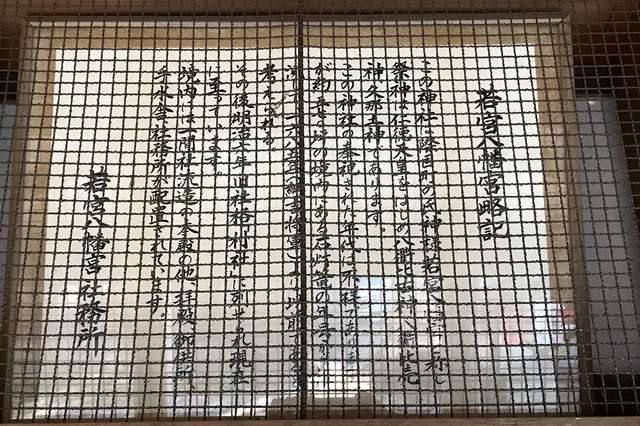 若宮八幡宮略記
この神社は 町の氏神様 若宮八幡宮と称し
祭神は仁徳天皇をはじめ八衢比古神 八衢比売
神久那土神であります。
この神社の奉祀された年代は不祥でありま
が約 坪の境内にある石灯篭の年号から
考えられる。
その後明治六年旧社格「村社」に列せられ現在
に至っています。
境内には一間社流造の本殿の他、拝殿、御供所、
手水舎、社務所が配置されています。
若宮八幡宮社務所